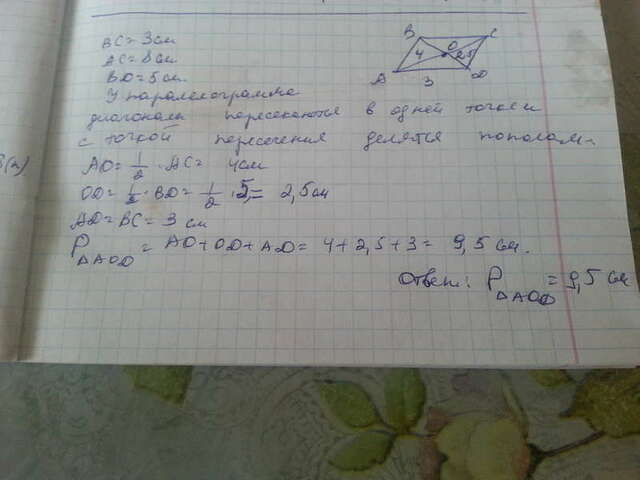 BC = 3 см
AC = 8 см
BD = 5 см.
У паралелограмма
диагонали пересекаются в одной точке и
с точкой пересечения делятся пополам.
AO = 1/2 · AC = 4 см
OD = 1/2 · BD = 1/2 · 5 = 2,5 см
AD = BC = 3 см
P△AOD = AO + OD + AD = 4 + 2,5 + 3 = 9,5 см.
Ответ: P△AOD = 9,5 см
B C
O
4 2,5
A 3 D